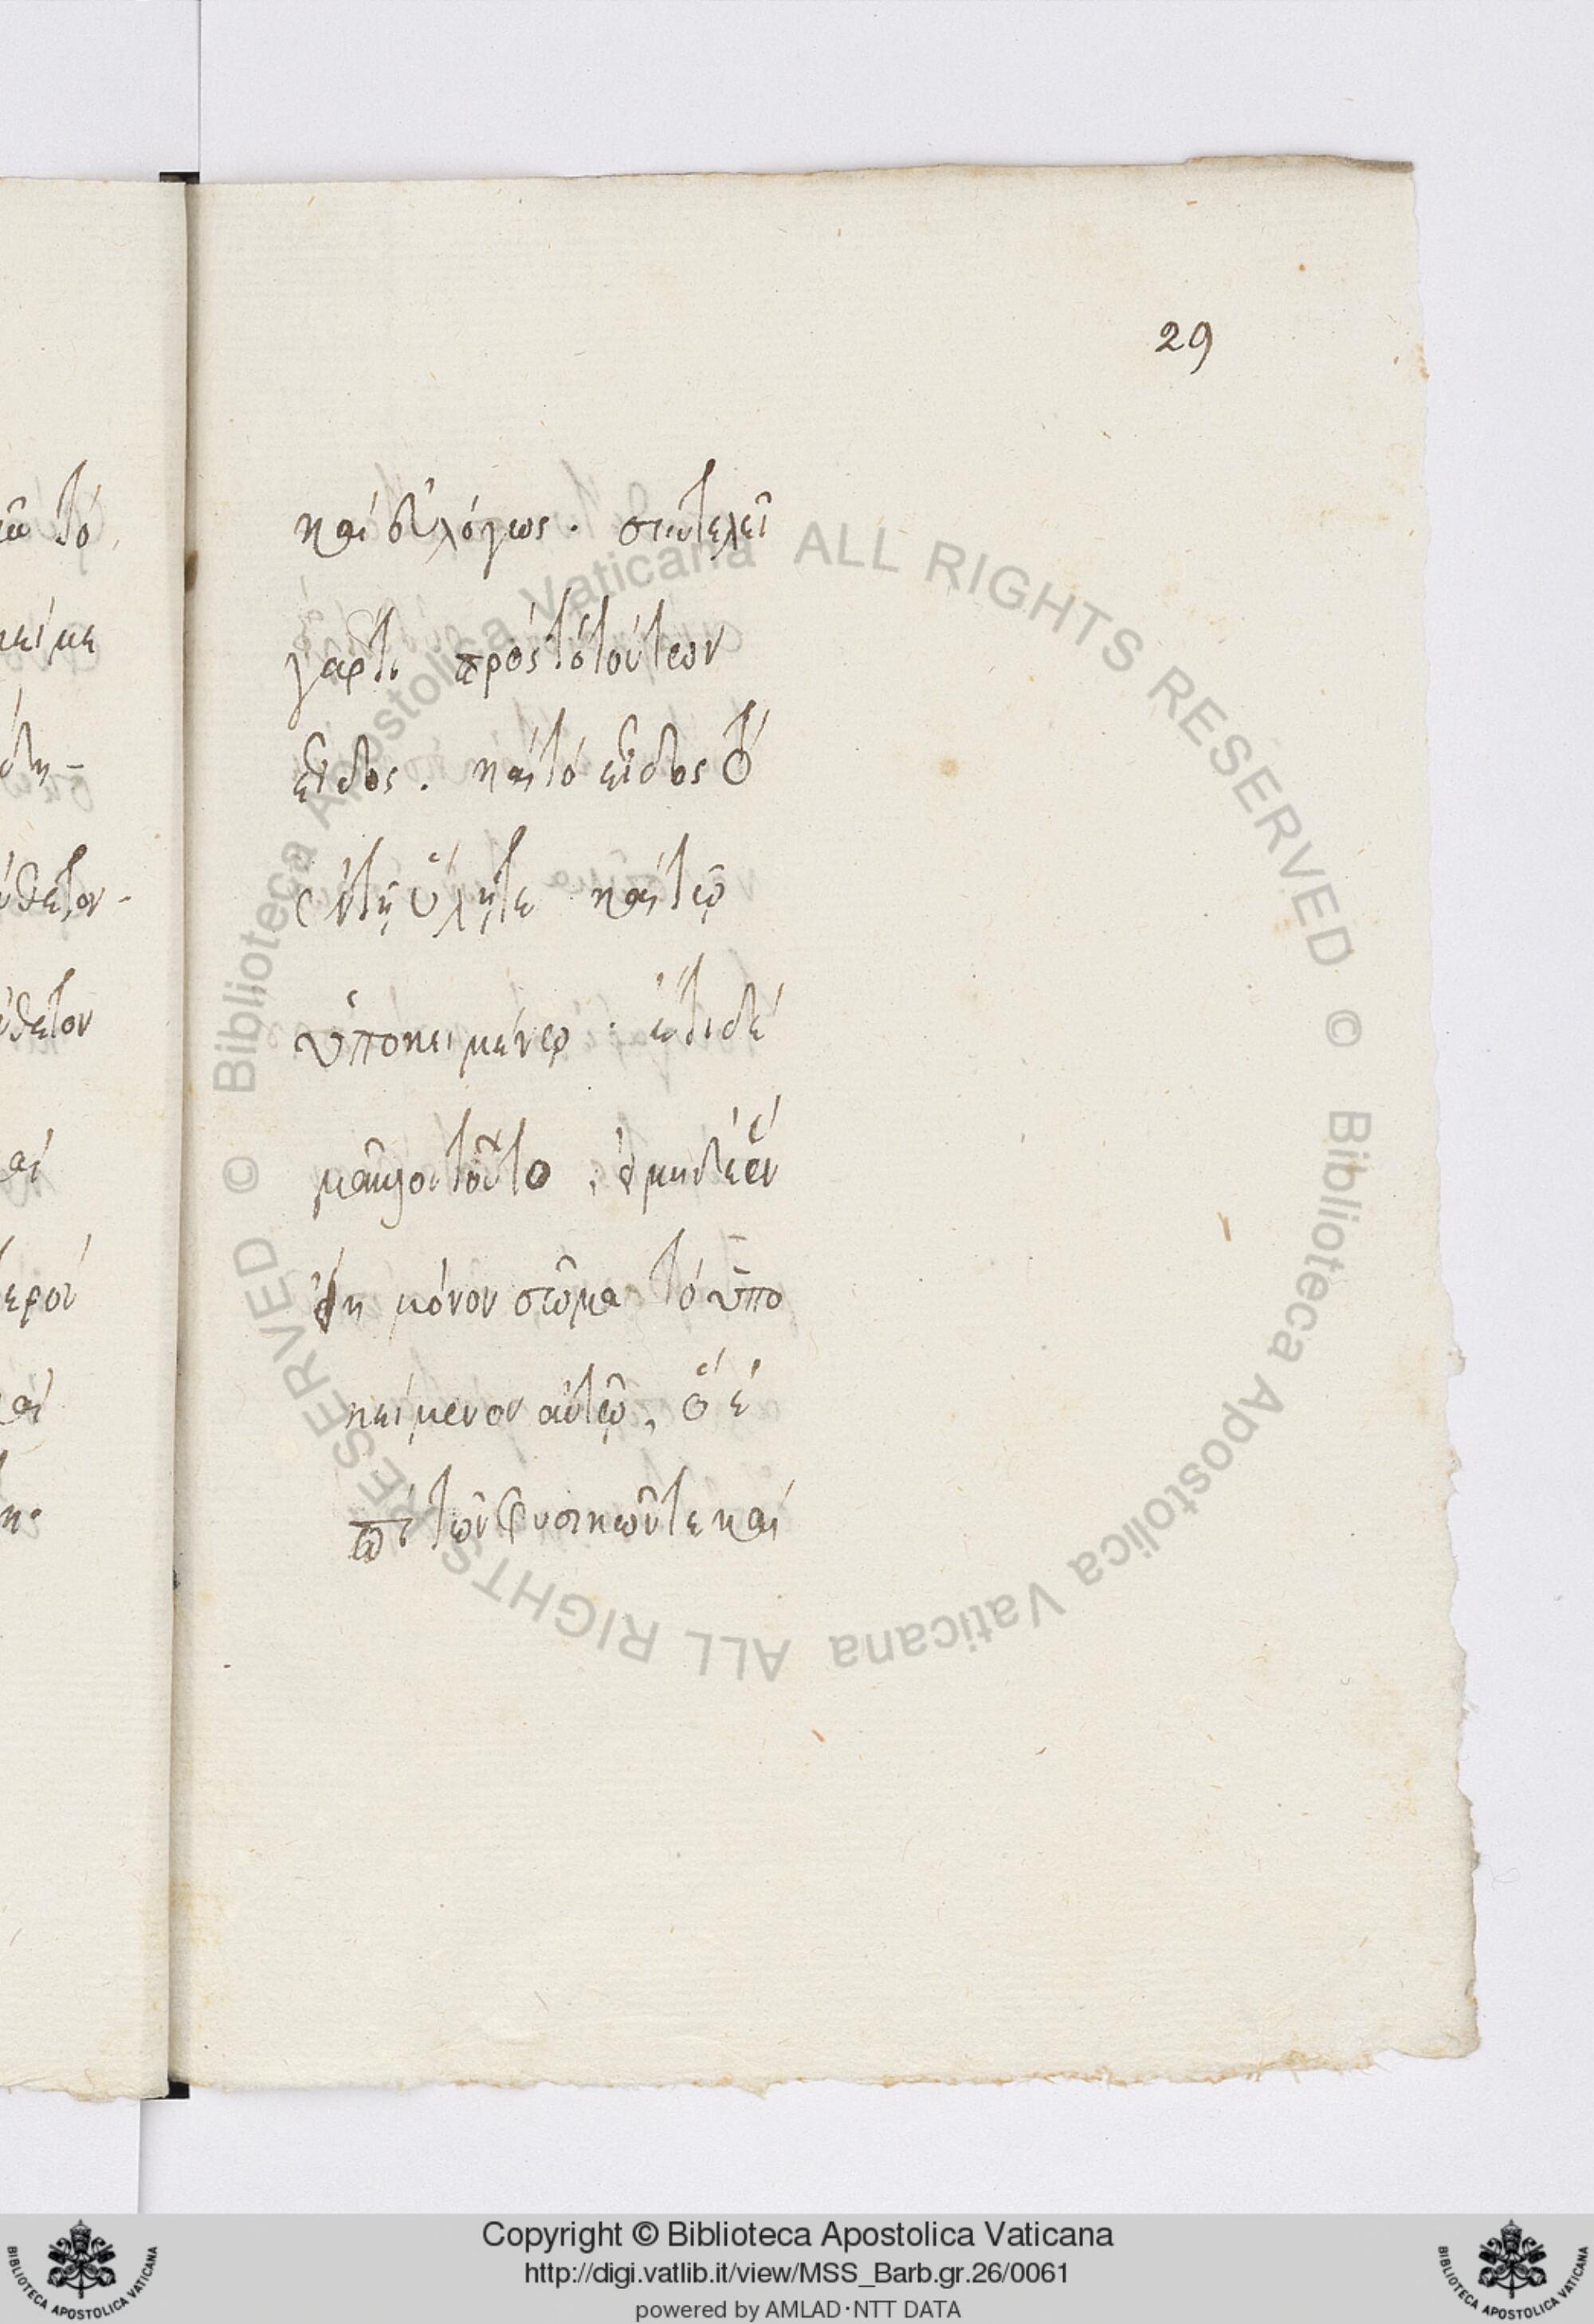 29
καὶ εὐλόγως. συντελεῖ
γάρτι πρὸς τὸ τούτων
εἶδος. καὶ τὸ εἶδος τὸ
ἐν τῇ ὕλῃ τε καὶ τῷ
ὑποκειμένῳ. ἔτι δὲ
μᾶλλον τοῦτο, 
μόνον σῶμα τὸ ὑπο
κείμενον αὐτῷ, ὃ ἐ
πὶ τῶν φυσικῶν τε καὶ
© Biblioteca Apostolica Vaticana ALL RIGHTS RESERVED © Biblioteca Apostolica Vaticana ALL RIGHTS RESERVED
Copyright © Biblioteca Apostolica Vaticana
http://digi.vatlib.it/view/MSS_Barb.gr.26/0061
powered by AMLAD·NTT DATA
BIBLIOTECA APOSTOLICA VATICANA
BIBLIOTECA APOSTOLICA VATICANA